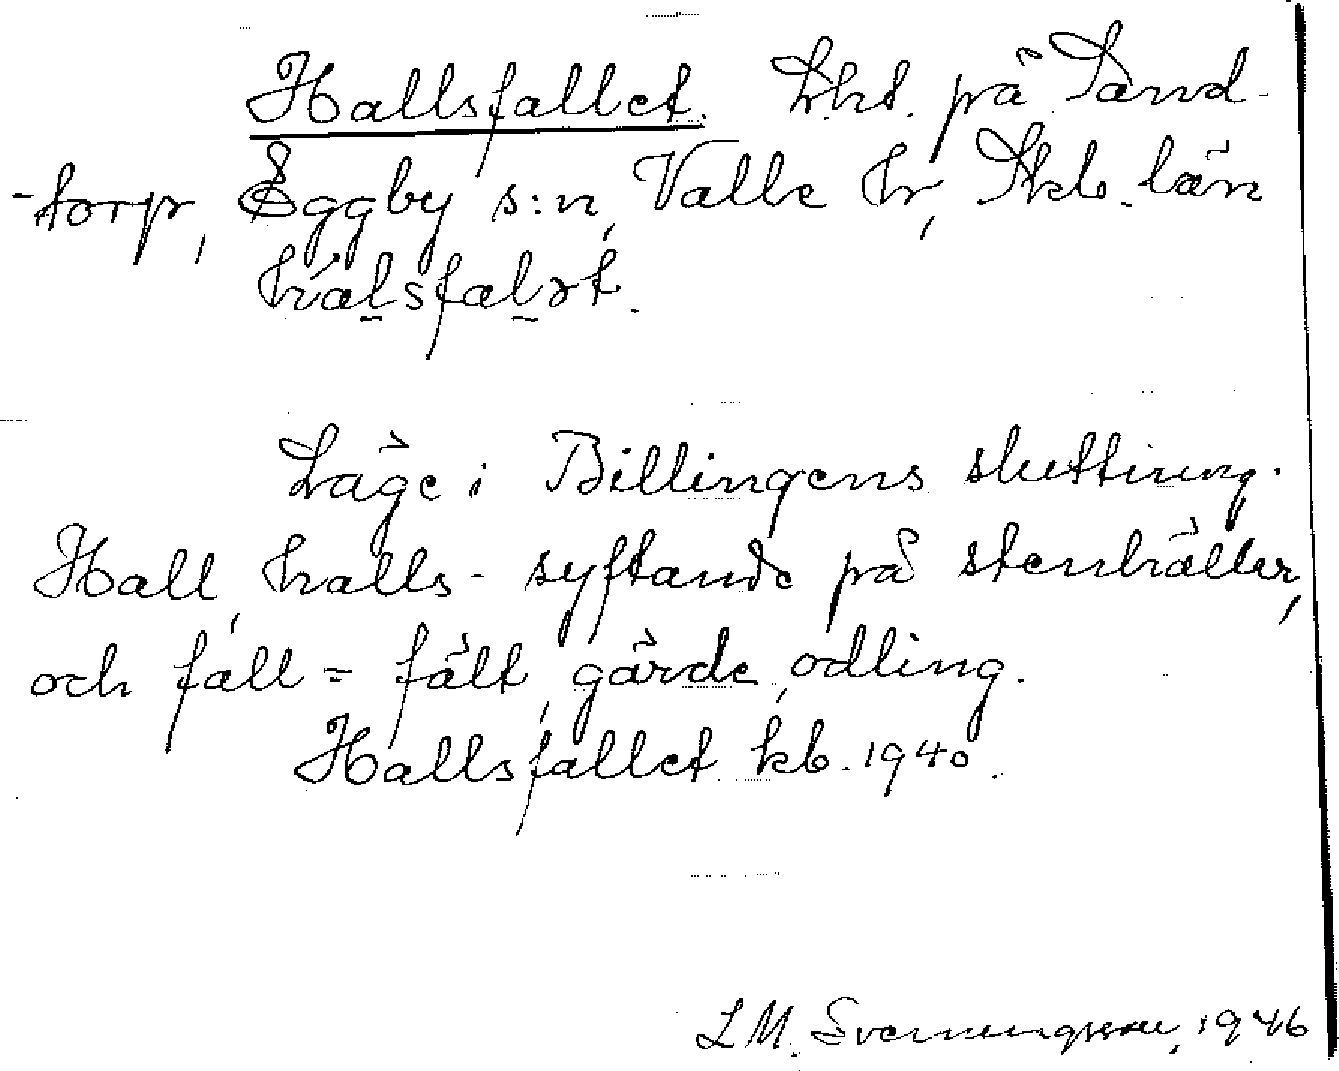 Hallsfallet. Lht. på Sand-
-torp, Eggby s:n, Valle hr, Skb. län
hálsfalət.
Läge i Billingens sluttning.
Hall, halls- syftande på stenhällar,
och fall = fält, gärde, odling.
Hallsfallet kb. 1940.
L M. Svenungsson, 1946